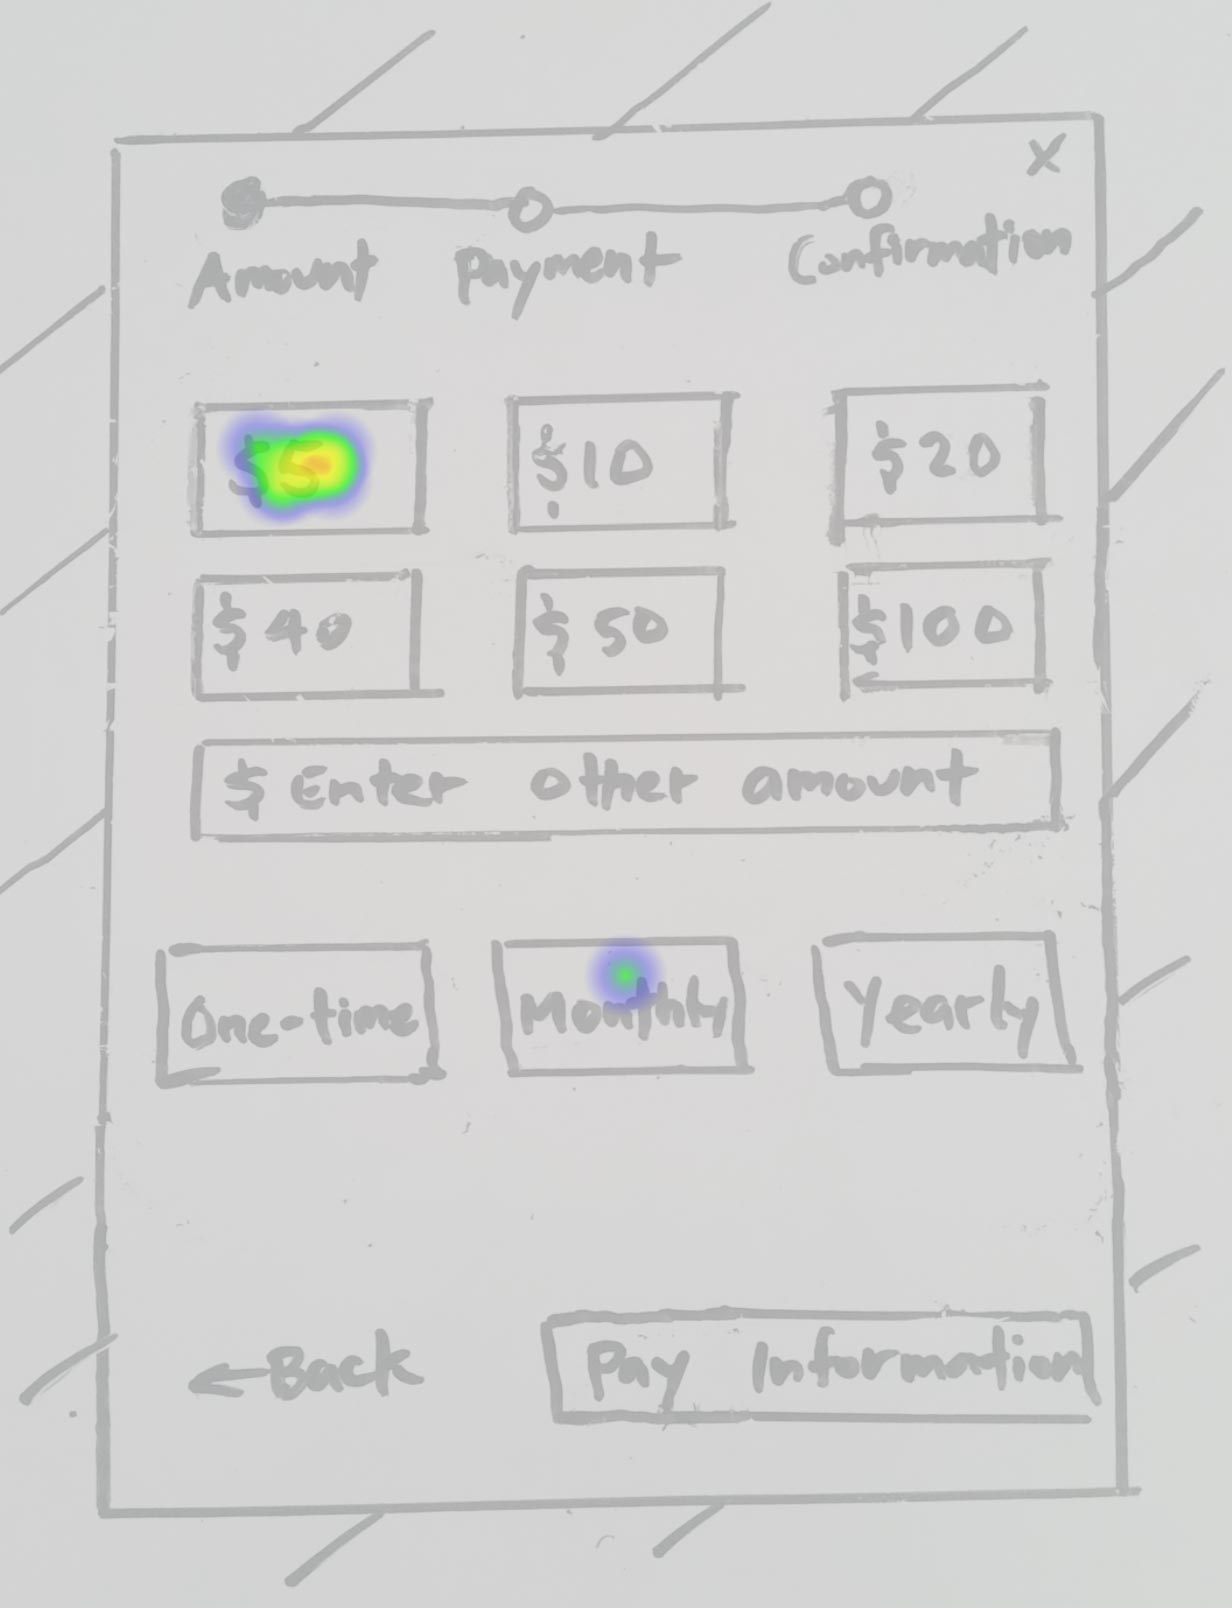 X
Amount Payment Confirmation
$5 $10 $20
$40 $50 $100
$ Enter other amount
One-time Monthly Yearly
←Back Pay Information